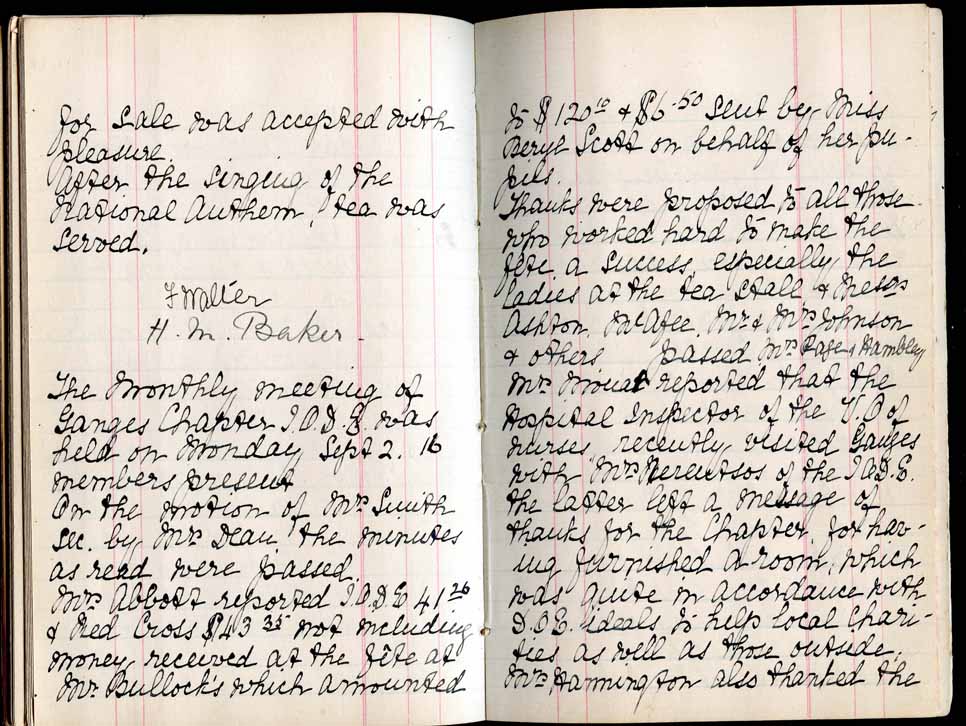 for sale was accepted with
pleasure.
After the singing of the
National Anthem, tea was
served.
F Walter
H. M. Baker.
The monthly meeting of
Ganges Chapter I.O.D.E. was
held on Monday Sept 2. 16
members present
On the motion of Mrs Smith
sec. by Mrs Dean the minutes
as read were passed.
Mrs Abbott reported I.O.D.E 41 26
& Red Cross $43 35 not including
money received at the fête at
Mr Bullock's which amounted
to $120 10 & $6.50 sent by Miss
Beryl Scott on behalf of her pu-
pils.
Thanks were proposed to all those
who worked hard to make the
fête a success, especially the
ladies at the tea stall & Mesrs
Ashton, McAfee, Mr & Mrs Johnson
& others passed Mrs Page & Hambley
Mrs Mouat reported that the
Hospital Inspector of the V.O of
nurses, recently visited Ganges
with Mrs of the I.O.D.E.
the latter left a message of
thanks for the Chapter, for hav-
ing furnished a room, which
was quite in accordance with
I.O.E. ideals to help local Chari-
ties as well as those outside.
Mrs Hannington also thanked the